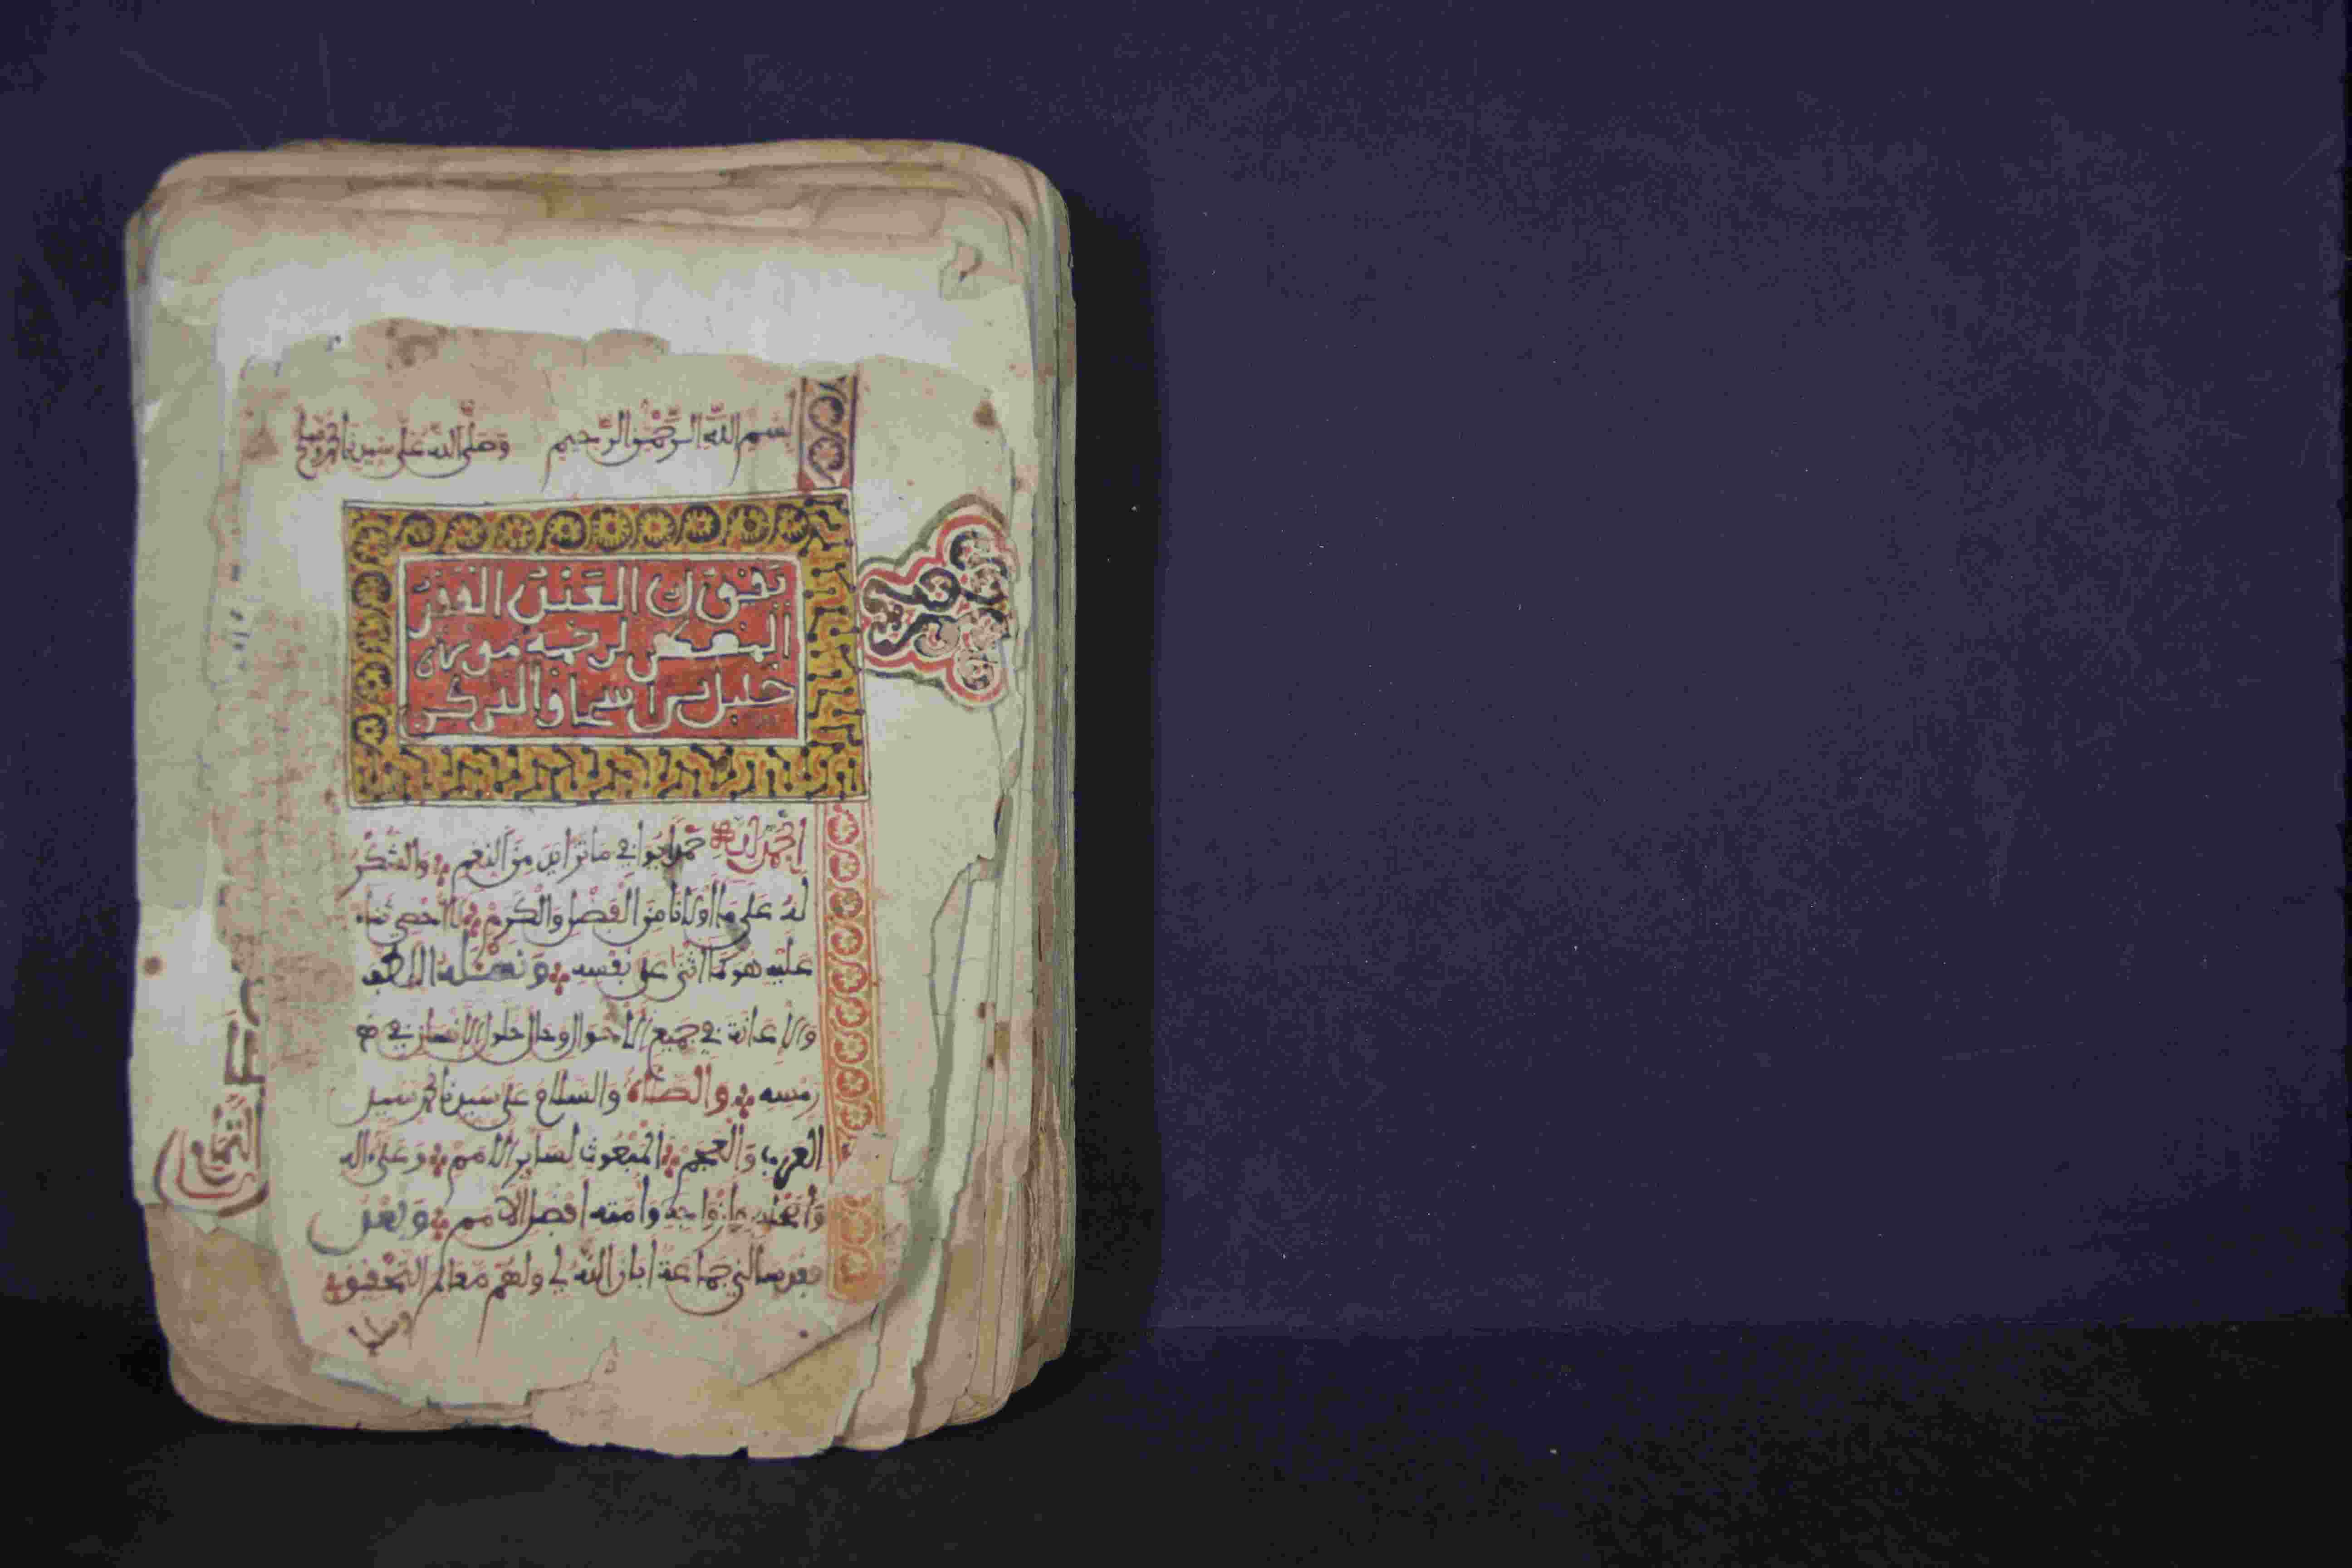 بسم الله الرحمن الرحيم وصلى الله على سيدنا محمد
يقول العبد الفقير
لرحمة
خليل بن
الحمد لله حمدا يوافي ما تزايد من النعم والشكر
له على ما أولانا من الفضل والكرم لا أحصي ثناء
عليه هو كما أثنى على نفسه ونسئله اللطف
والإعانة في جميع الأحوال وحال حلول الإنسان في
رمسه والصلاة والسلام على سيدنا محمد سيد
العرب والعجم المبعوث لسائر الأمم وعلى آله
وأزواجه وأمته أفضل الأمم وبعد
فقد سألني جماعة أبان الله لي ولهم معالم التحقيق
وسلك